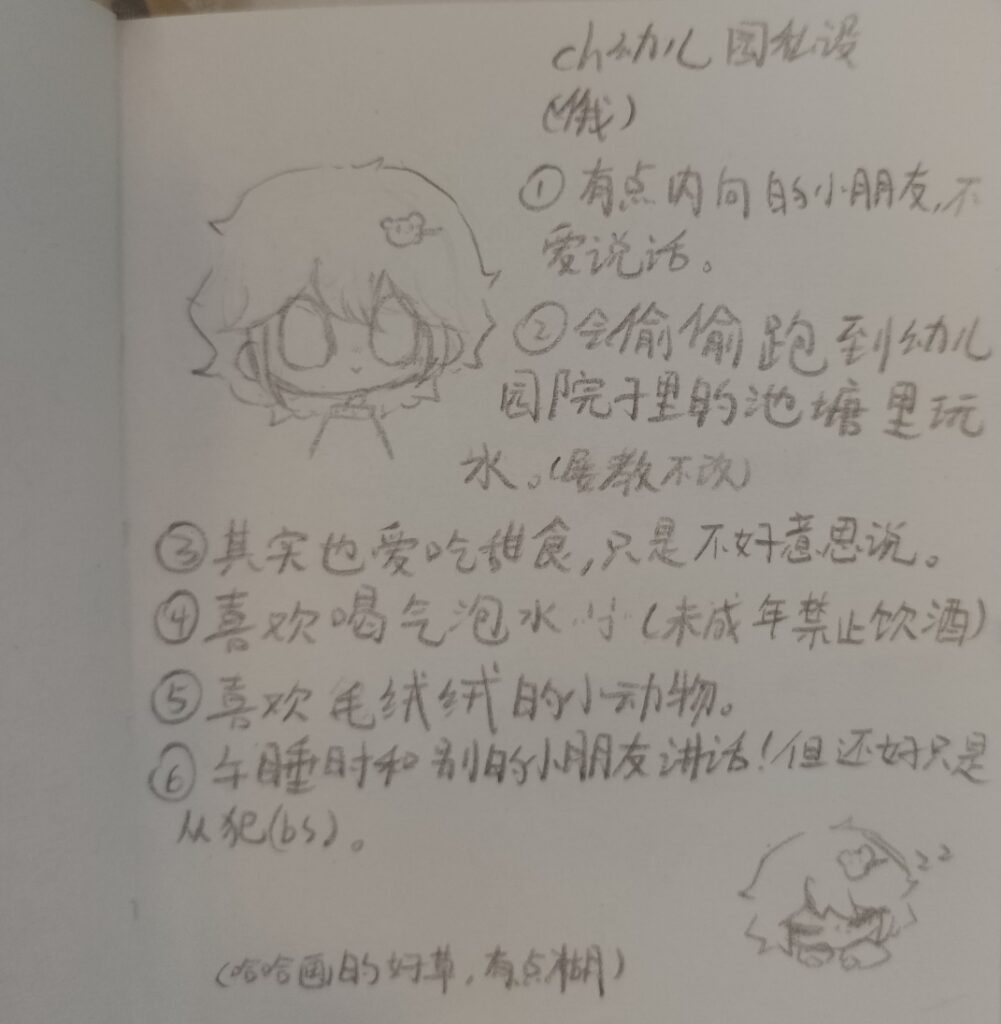 ch幼儿园私设
(俄)
①有点内向的小朋友,不
爱说话。
②会偷偷跑到幼儿
园院子里的池塘里玩
水。(屡教不改)
③其实也爱吃甜食,只是不好意思说。
④喜欢喝气泡水(未成年禁止饮酒)
⑤喜欢毛绒绒的小动物。
⑥午睡时和别的小朋友讲话!但还好只是
从犯(bs)。
zz
(哈哈画的好草,有点糊)